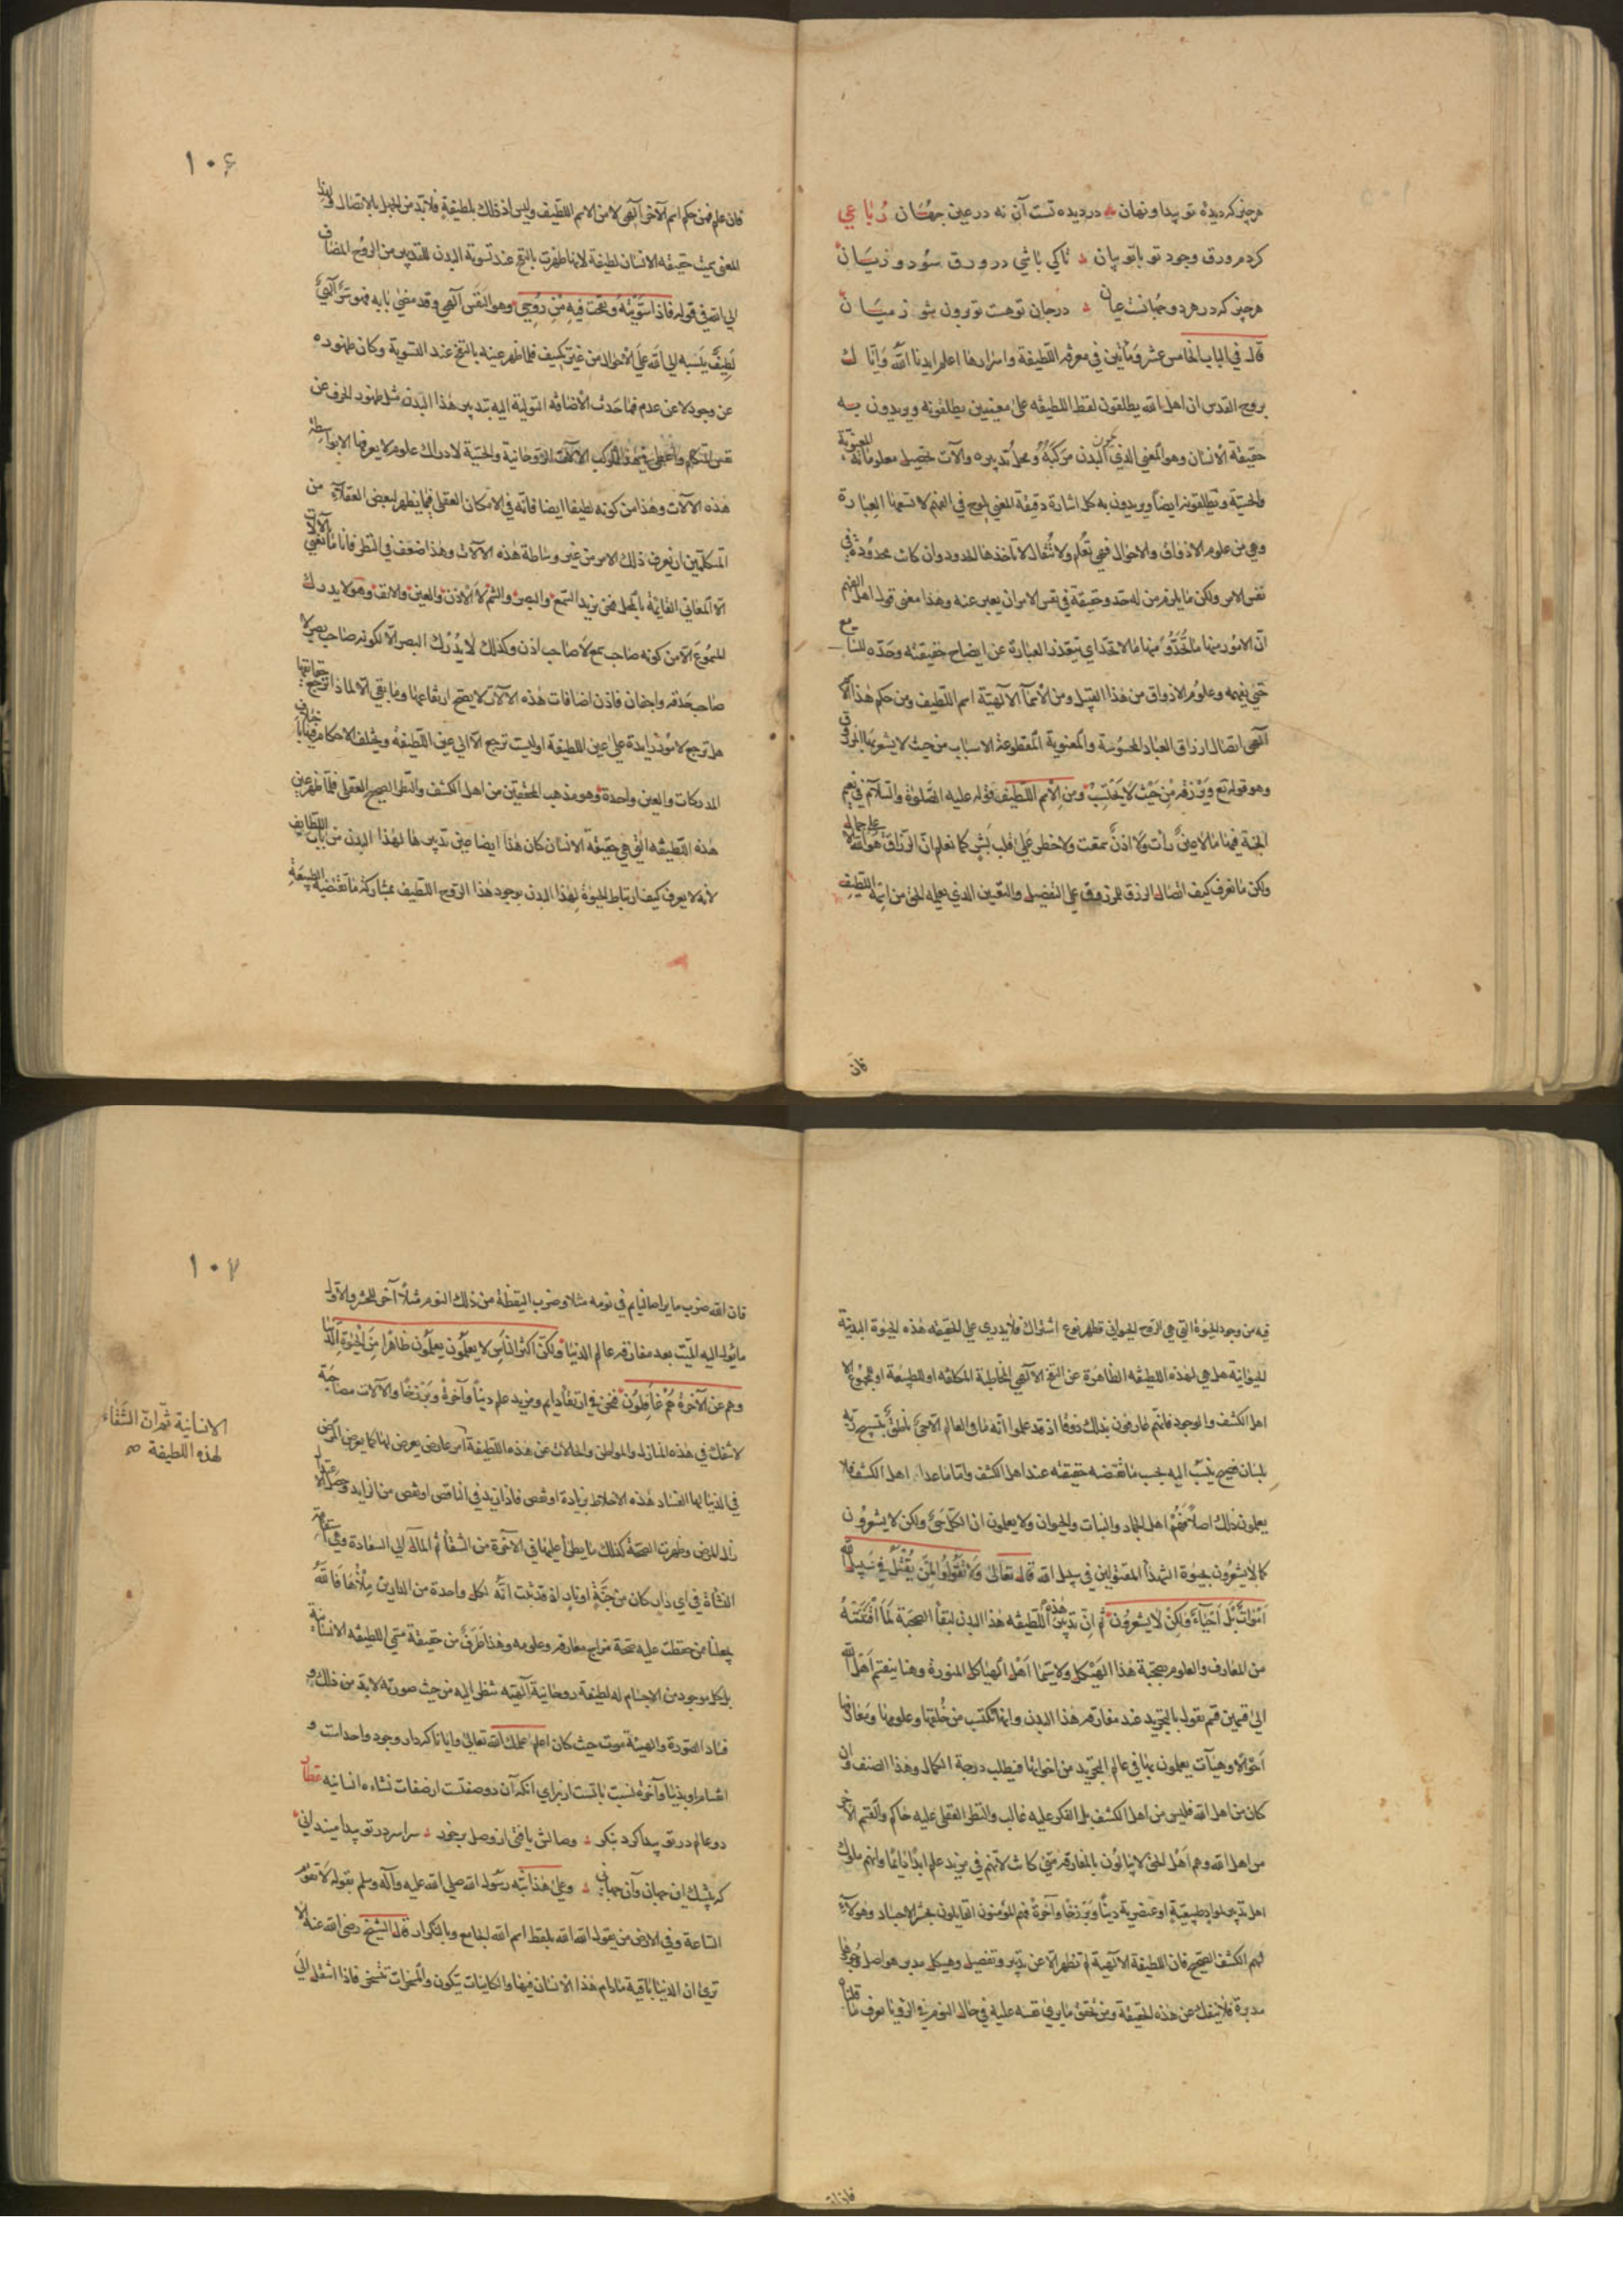 هرچیز که دیده تو پیدا و نهان در دیده تست آن نه در عین جهان رباعي
کردم ورق وجود تو با تو بیان تا کي باشي در ورق سود و زیان
هرچیز که در هر دو جهانست عیان در جان تو هست تو برون شو ز میان
قال في الباب الخامس عشر ومأتين في معرفة اللطيفة واسرارها اعلم ايدنا الله واياك
بروح القدس ان اهل الله يطلقون لفظ اللطيفه على معنيين يطلقونه ويريدون به
حقيقة الانسان وهو المعنى الذي يكون البدن مركبه ومحل تدبيره وآلات تحصيل معلوماته المعنوية
والحسية ويطلقونه ايضاً ويريدون به كل اشارة دقيقة المعنى تلوح في الفهم لا تسعها العبارة
وهي من علوم الاذواق والاحوال فهي تعلم ولا تنقال لا تأخذها الحدود وان كانت محدودة في
نفس الامر ولكن ما يلزم من له حد وحقيقة في نفس الامر ان يعبر عنه وهذا معنى قول اهل الفهم
ان الامور منها ما تحد ومنها ما لا تحد اي تتعذر العبارة عن ايضاح حقيقته وحده للسامع
حتى يفهمه وعلوم الاذواق من هذا القبيل ومن الاسمآ الالهية اسم اللطيف ومن حكم هذا الاسم
الهي ايصال ارزاق العباد المحسوسة والمعنوية المقطوعة الاسباب من حيث لا يشعر بها المرزوق
وهو قوله تع ويرزقه من حيث لا يحتسب ومن الاسم اللطيف قوله عليه الصلوة والسلام في نعيم
الجنة فيها ما لا عين رأت ولا اذن سمعت ولا خطر على قلب بشر كما نعلم ان الرزاق هو الله
ولكن ما نعرف كيف ايصال الرزق للمرزوق على التفصيل والتعيين الذي يعلمه الحق من اسمه اللطيف
فان
١٠٦
فان علم فمن حكم اسم آلآخر الهي لا من الاسم اللطيف وليس اذ ذلك بلطيفة فلا بد من الجهل بالايصال ولهذا
المعنى سميت حقيقة الانسان لطيفة لانها ظهرت بالنفخ عند تسوية البدن للتدبير من الروح المضاف
الى الله في قوله فاذا سويته ونفخت فيه من روحي وهو النفس الهي وقد مضى بابه فهو سر الهي
لطيف ينسب الى الله على الاجمال من غير تكييف فلما ظهر عينه بالنفخ عند التسوية وكان ظهوره
عن وجود لا عن عدم فما حدث الا اضافة التولية اليه بتدبير هذا البدن مثل ظهور الحرف عن
نفس المتكلم واعطى في هذا المركب الآلات الروحانية والحسية لادراك علوم لا يعرفها الا بواسطة
هذه الآلات وهذا من كونه لطيفا ايضا فانه في الامكان العقلي فيما يظهر لبعض العقلاء من
المتكلمين ان يعرف ذلك الامر من غير وساطة هذه الآلات وهذا ضعف في النظر فانا ما نعني بالآلات
الا المعاني القائمة بالمحل فنحن نريد السمع والبصر والشم لا الاذن والعين والانف وهو لا يدرك
المسموع الا من كونه صاحب سمع لا صاحب اذن وكذلك لا يدرك البصر الا لكونه صاحب بصر لا
صاحب حدقه واجفان فاذن اضافات هذه الآلات لا يصح ارتفاعها وما بقى الا لماذا ترجع حقايقها
هل ترجع لامور زايدة على عين اللطيفة او ليست ترجع الا الى عين اللطيفة ويختلف الاحكام فيها باختلاف
المدركات والعين واحدة وهو مذهب المحققين من اهل الكشف والنظر الصحيح العقلي فلما ظهر عين
هذه اللطيفه التي هي حقيقة الانسان كان هذا ايضا عين تدبيرها لهذا البدن من باب اللطايف
لانه لا يعرف كيف ارتباط الحيوة لهذا البدن بوجود هذا الروح اللطيف بمشاركة ما تقتضيه الطبيعة
فيه من وجود الحيوة التي هي الروح الحيواني فظهر نوع اشتراك فلا يدرى على الحقيقة هذه الحيوة البدنية
الحيوانية هل هي لهذه اللطيفه الظاهرة عن النفخ الآلهي المخاطبة المكلفه او للطبيعة او للمجموع الا
اهل الكشف والوجود فانهم عارفون بذلك ذوقا اذ قد علموا انه ما في العالم الا حي ناطق بتسبيح ربه
بلسان فصيح ينسب اليه بحسب ما تقتضيه حقيقته عند اهل الكشف واما ما عدا اهل الكشف فلا
يعلمون ذلك اصلا فهم اهل الجماد والنبات والحيوان ولا يعلمون ان الكل حي ولكن لا يشعرون
كما لا يشعرون بحيوة الشهدآ المقتولين في سبيل الله قال تعالى ولا تقولوا لمن يقتل في سبيل الله
اموات بل احياء ولكن لا يشعرون ثم ان تدبير هذه اللطيفه هذا البدن لبقآ الصحبة لما اقتنته
من المعارف والعلوم بصحبة هذا الهيكل ولا سيما اهل الهياكل المنورة وهنا ينقسم اهل الله
الى قسمين قسم يقول بالتجريد عند مفارقة هذا البدن وانها تكتسب من خلقها وعلومها ومعارفها
احوالا وهيآت يعلمون بها في عالم التجريد من اخواتها فيطلب درجة الكمال وهذا الصنف وان
كان من اهل الله فليس من اهل الكشف بل الفكر عليه غالب والنظر العقلي عليه حاكم والقسم الآخر
من اهل الله وهم اهل الحق لا يبالون بالمفارقة متى كانت لانهم في مزيد علم ابدا دائما وانهم ملوك
اهل تدبير لمواد طبيعية او عنصرية دنيا وبرزخا وآخرة فهم المؤمنون القايلون بحشر الاجساد وهؤلاء
لهم الكشف الصحيح فان اللطيفة الالهية لم تظهر الا عن تدبير وتفصيل وهيكل مدبر هو اصل وجودها
مدبرة فلا ينفك عن هذه الحقيقة ومن تحقق ما يرى نفسه عليه في حال النوم في الرؤيا يعرف ما قلناه
١٠٧
فان الله ضرب ما يراه النايم في نومه مثلا وضرب اليقظة من ذلك النوم مثلا آخر للحشر والاول
ما يؤل اليه الميت بعد مفارقه عالم الدنيا ولكن اكثر الناس لا يعلمون يعلمون ظاهرا من الحيوة الدنيا
وهم عن الآخرة هم غافلون فنحن في ارتقاء دايم ومزيد علم دنياً وآخرة وبرزخا والآلات مصاحبة
لا تنفك في هذه المنازل والمواطن والحالات عن هذه اللطيفة
الانسانية ثم ان الشقاء
لهذه اللطيفة صح
امر عارض يعرض لها كما يعرض المرض
في الدنيا لها لفساد هذه الاخلاط بزيادة او نقص فاذا زيد في الناقص او نقص من الزايد وحصل الاعتدال
زال المرض وظهرت الصحة كذلك ما يطرأ عليها في الآخرة من الشقآ ثم المآل الى السعادة وهي استقامة
النشأة في اي دار كان من جنة او نار اذ قد ثبت انه لكل واحدة من الدارين ملأها فالله
يجعلنا ممن حفظت عليه صحة مزاج معارفه وعلومه وهذا طرف من حقيقة مسمى اللطيفه الانسانية
بل كل موجود من الاجسام له لطيفة روحانية آلهيه تنظر اليه من حيث صورته لا بد من ذلك و
فساد الصورة والهيئة موت حيث كان اعلم علمك الله تعالى وايانا كردار وجود واحداست و
اقسام او بدنيا وآخرة نسبت باتست از براي انكه آن دو صفتست از صفات نشاءه انسانيه عطار
دو عالم در تو پیدا کرد بنکر وصالش یافتی از وصل برخور سراسر در تو پیدا میندانی
که بیشك این جهان و آن جهانی وعلى هذا نبه رسول الله صلى الله عليه وآله وسلم بقوله لا تقوم
الساعة وفي الارض من يقول الله الله بلفظ اسم الله الجامع وبالتكرار قال الشيخ رضي الله عنه الا
ترى ان الدنيا باقية مادام هذا الانسان فيها والكاينات تتكون والمسخرات تتسخر فاذا انتقل الى